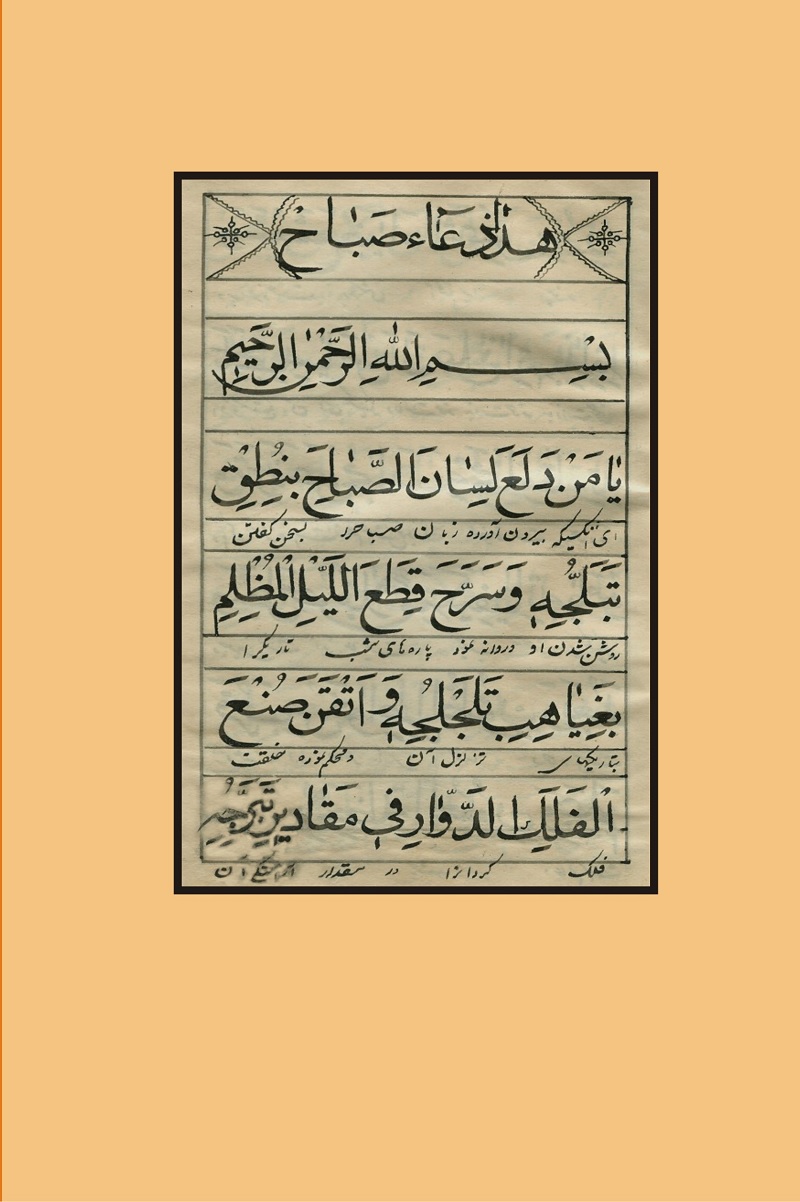 هذا دُعَاء صَبٰاح
بِسْـــمِ اللهِ الرَّحْمٰنِ الرَّحيمِ
يٰا مَنْ دَلَعَ لِسٰانَ الصَّبٰاحِ بِنُطْقِ
ای آنکسیکه بیرون آورده زبان صبح خرد بسخن گفتن
تَبَلُّجِهِ وَسَرَّحَ قِطَعَ اللَّيْلِ الْمُظْلِمِ
روشن شدن او و روانه نمود پاره های شب تاریکرا
بِغَيٰاهِبِ تَلَجْلُجِهِ وَ اَتْقَنَ صُنْعَ
بتاریکیهای تزلزل آن و محکم نموده خلقت
الْفَلَكِ الدَّوّٰارِ في مَقٰاديرِ تَبَرُّجِهِ
فلک گردانرا در مقدار آن